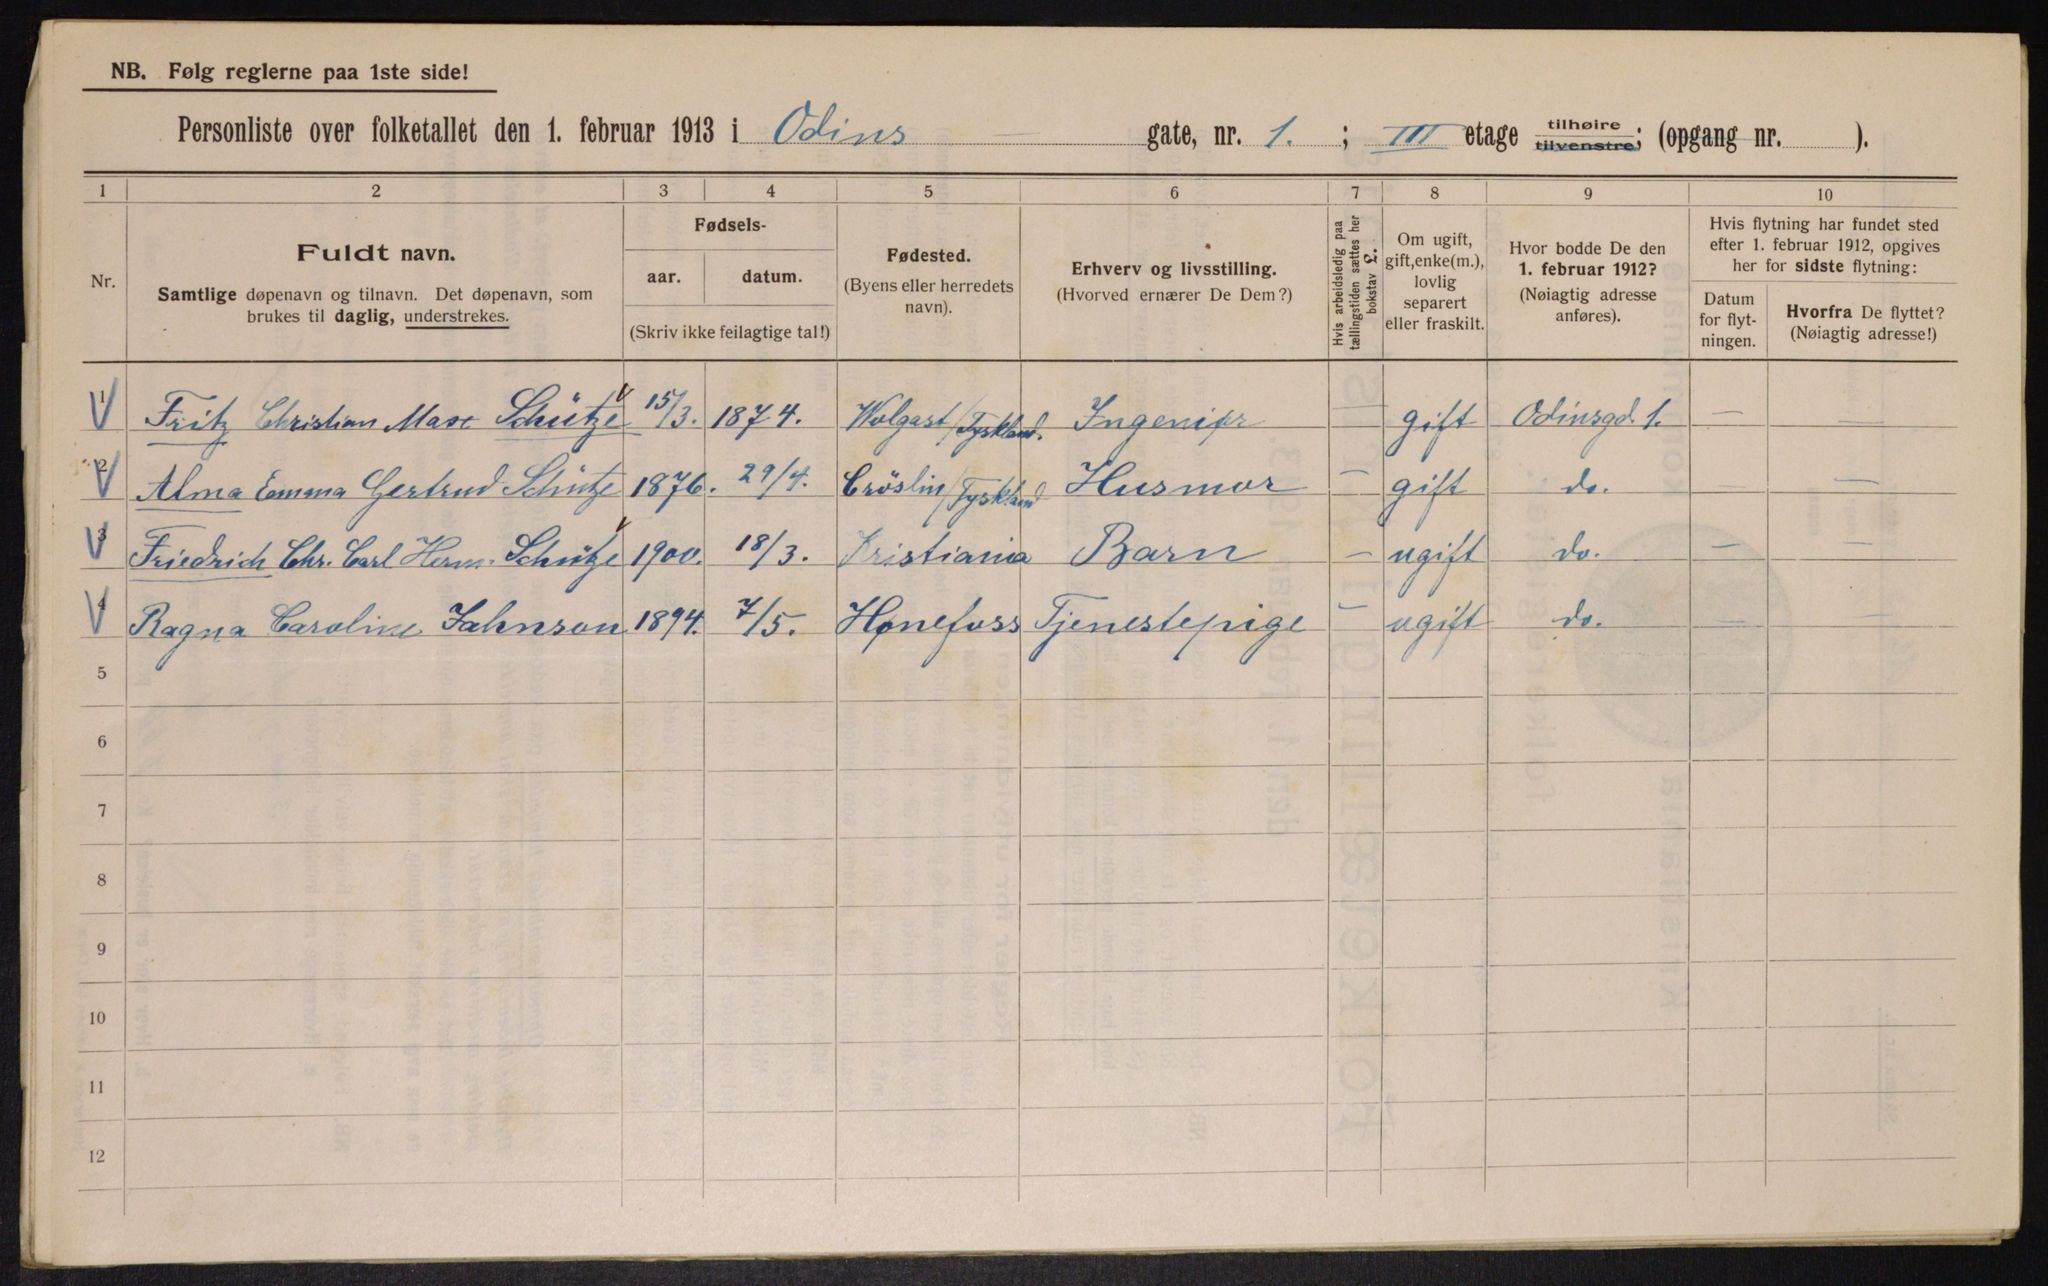 NB. Følg reglerne paa 1ste side!
Personliste over folketallet den 1. februar 1913 i Odins gate, nr. 1. ; III etage tilhøire tilvenstre; (opgang nr. ).
1 2 3 4 5 6 7 8 9 10
Nr.
Fuldt navn.
Samtlige døpenavn og tilnavn. Det døpenavn, som
brukes til daglig, understrekes.
Fødsels-
aar. datum.
(Skriv ikke feilagtige tal!)
Fødested.
(Byens eller herredets
navn).
Erhverv og livsstilling.
(Hvorved ernærer De Dem?)
Hvis arbeidsledig paa
tællingstiden sættes her
bokstav L.
Om ugift,
gift, enke(m.),
lovlig
separert
eller fraskilt.
Hvor bodde De den
1. februar 1912?
(Nøiagtig adresse
anføres).
Hvis flytning har fundet sted
efter 1. februar 1912, opgives
her for sidste flytning:
Datum
for flyt-
ningen.
Hvorfra De flyttet?
(Nøiagtig adresse!)
1 Fritz Christian Max Schütze 15/3. 1874. Wolgast/Tyskland. Ingeniør — gift Odinsgd. 1. — —
2 Alma Emma Gertrud Schütze 1876. 29/4. Cröslin/Tyskland Husmor — gift do. — —
3 Friedrich Chr. Carl Herm. Schütze 1900. 18/3. Kristiania Barn — ugift do. — —
4 Ragna Caroline Jahnson 1894. 7/5. Hønefoss Tjenestepige — ugift do. — —
5
6
7
8
9
10
11
12